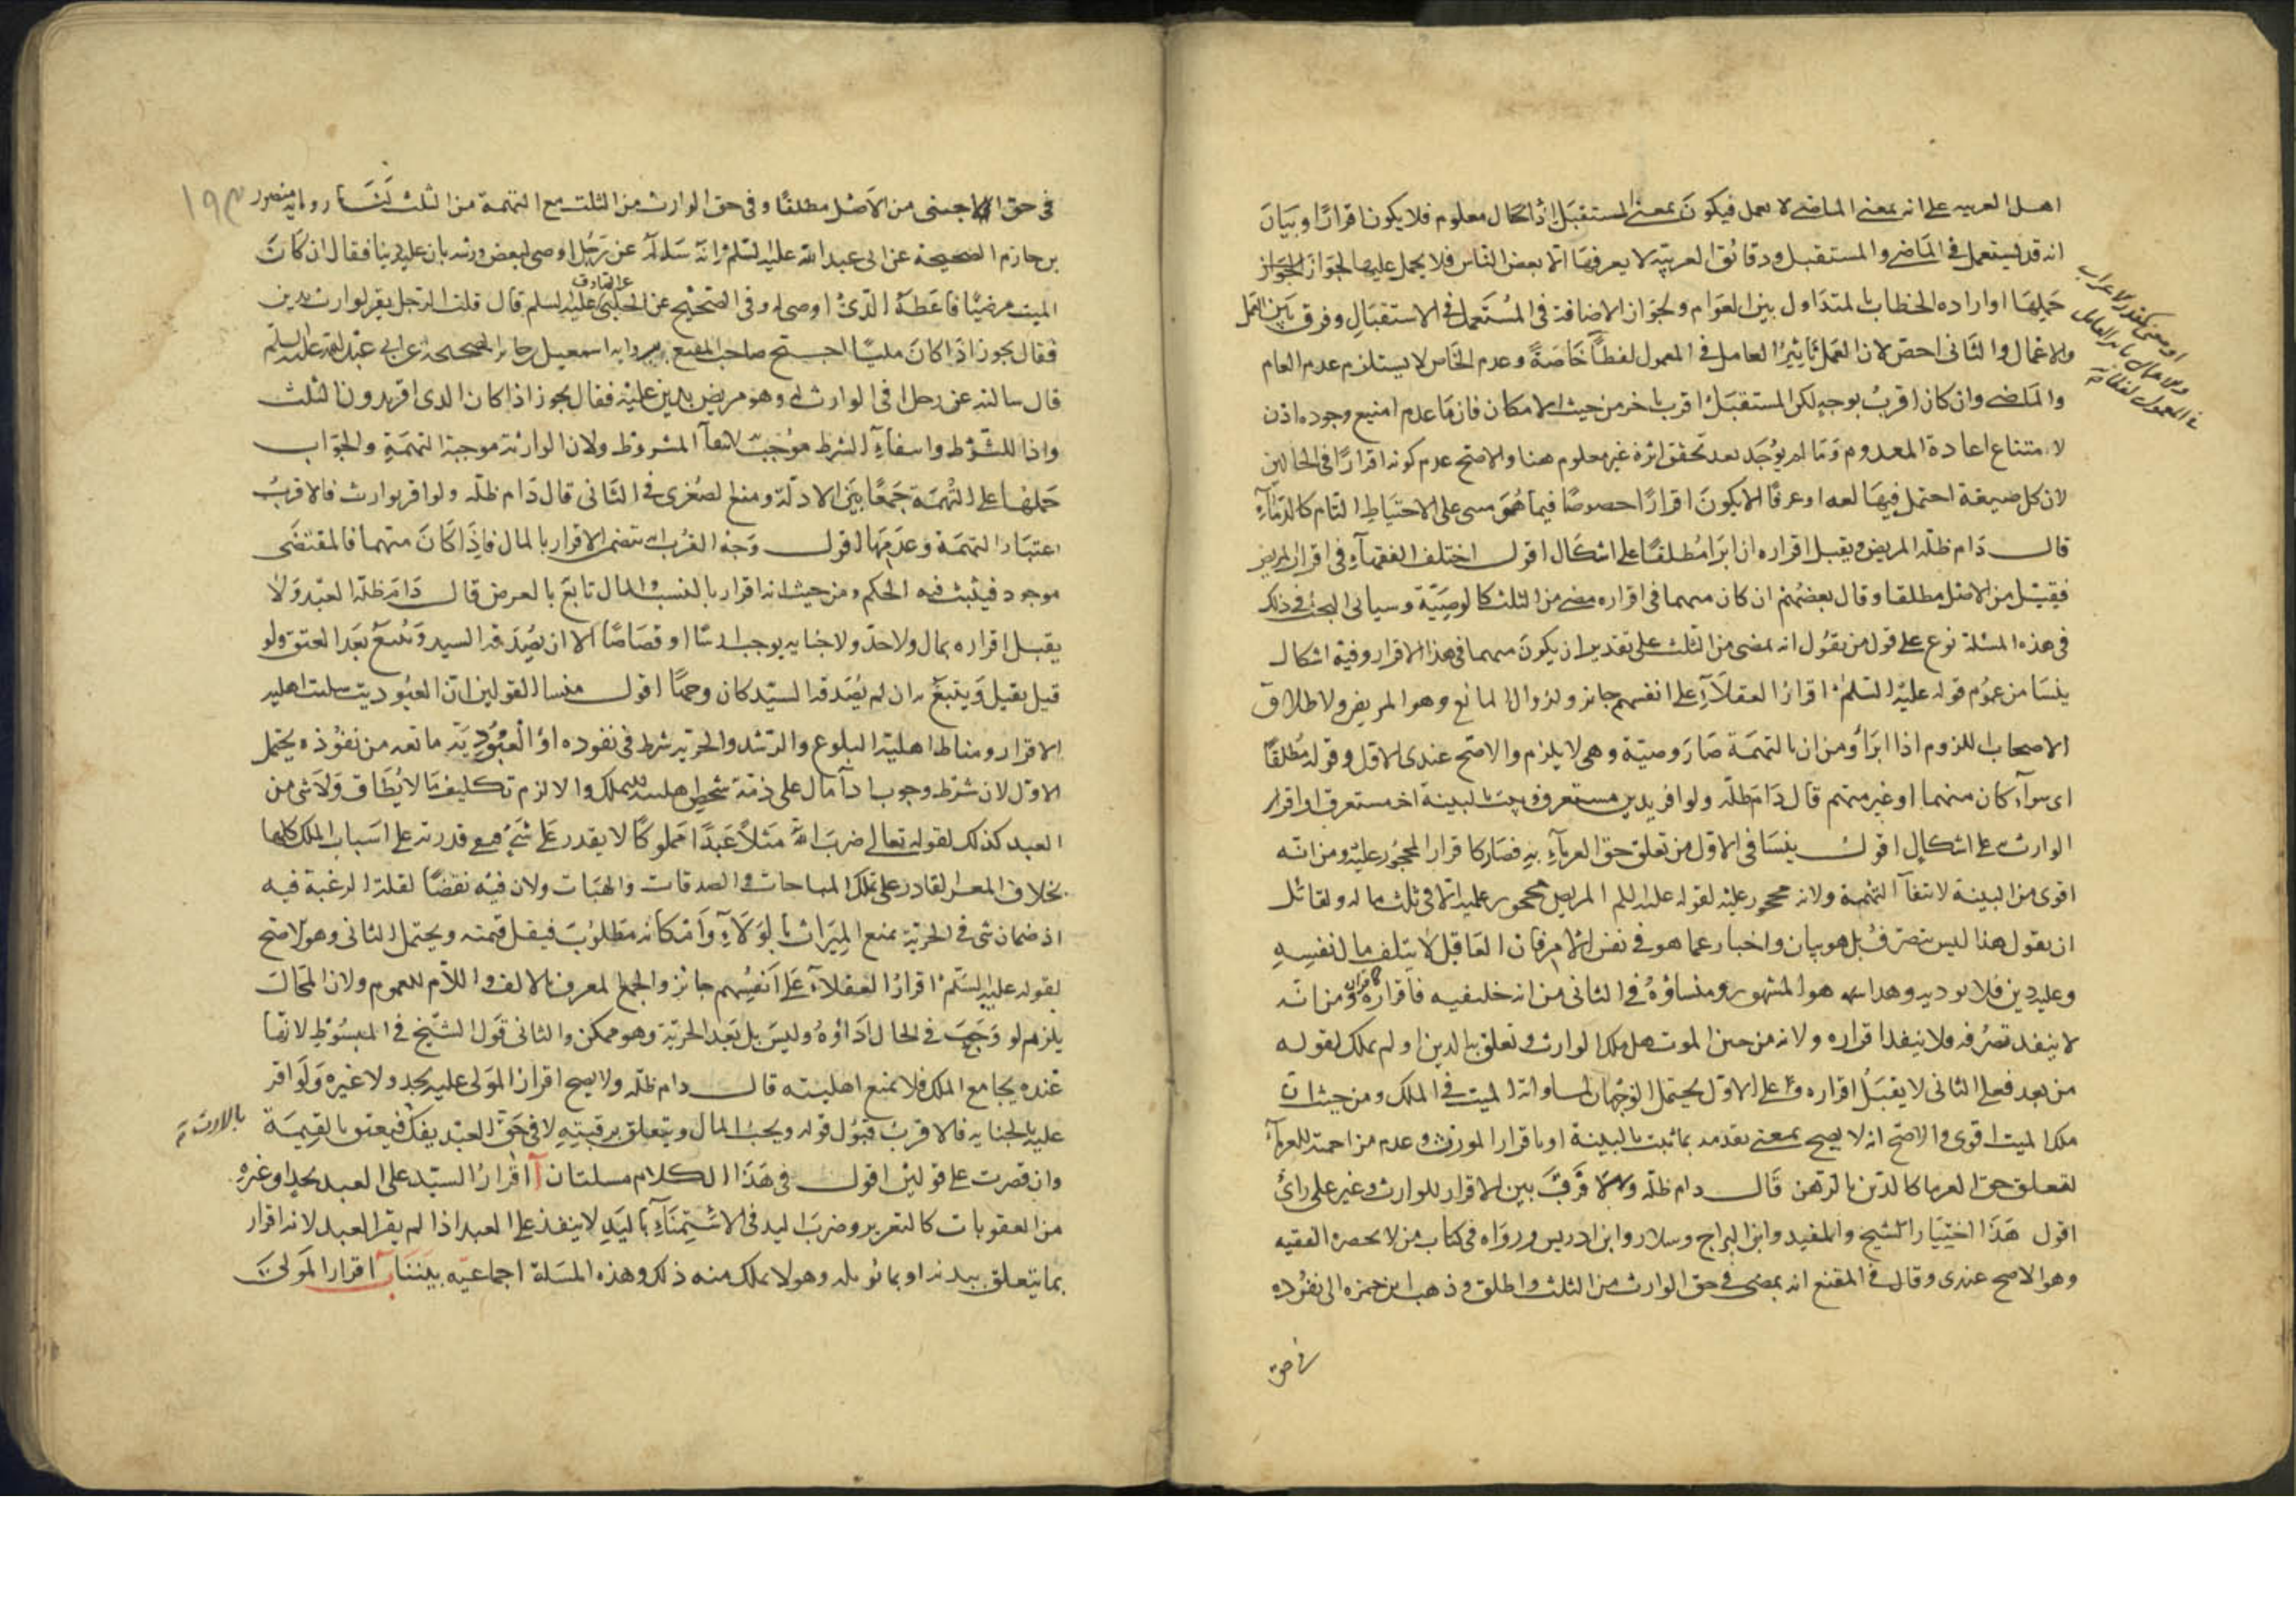 اهل العربيه على انه بمعنى الماضى لا يعمل فيكون بمعنى المستقبل اذ الحال معلوم فلا يكون اقرارًا وبيان
انه قد يستعمل فى الماضى والمستقبل ودقائق العربية لا يعرفها الا بعض الناس فلا يحمل عليها لجواز الجواز
حملها او اراده الخطاب بالمتداول بين العوام ولجواز الاضافة فى المستعمل فى الاستقبال وفرق بين العمل
والاعمال والثانى اخص لان العمل تاثير العامل فى المعمول لفظًا خاصة وعدم الخاص لا يستلزم عدم العام
او معنى كتقدير الاعراب
والاعمال تاثير العامل
فى المعمول لفظا
والماضى وان كان اقرب بوجه لكن المستقبل اقرب باخر من حيث الامكان فان ما عدم امتنع وجوده اذن
لامتناع اعادة المعدوم وما لم يوجد بعد تحقق اثره غير معلوم هنا والاصح عدم كونه اقرارًا فى الحالين
لان كل صيغة احتمل فيها لغه او عرفًا الا يكون اقرارًا خصوصًا فيما هو مبنى على الاحتياط التام كالدماء
قال دام ظله المريض ويقبل اقراره ان برا مطلقًا على اشكال اقول اختلف الفقهاء فى اقرار المريض
فقيل من الاصل مطلقا وقال بعضهم ان كان متهما فى اقراره مضى من الثلث كالوصية وسياتى البحث فى ذلك
فى هذه المسئلة نوع على قول من يقول انه يمضى من الثلث على تقدير ان يكون متهما فى هذا الاقرار وفيه اشكال
ينشا من عموم قوله عليه السلم اقرار العقلاء على انفسهم جائز ولزوال المانع وهو المرض ولاطلاق
الاصحاب اللزوم اذا ابرا ومن ان بالتهمة صار وصية وهى لا يلزم والاصح عندى الاول وقوله مطلقًا
اى سواء كان متهما او غير متهم قال دام ظله ولو اقر بدين مستغرق وثبت بالبينة اخر مستغرق او اقرار
الوارث على اشكال اقول ينشا فى الاول من تعلق حق الغرماء به فصار كاقرار المحجور عليه ومن انه
اقوى من البينة لانتفاء التهمة ولانه محجور عليه لقوله عليه السلم المريض محجور عليه الا فى ثلث ماله ولقائل
ان يقول هذا ليس بتصرف بل هو بيان واخبار عما هو فى نفس الامر فان العاقل لا يتلف مالا لنفسه
وعليه دين فلا يوديه وهذا هو المشهور ومنشاؤه فى الثانى من انه خليفته فاقراره كاقراره ومن انه
لا ينفد تصرفه فلا ينفد اقراره ولانه من حين الموت هل ملك الوارث وتعلق به الدين او لم يملك لقوله
من بعد فعلى الثانى لا يقبل اقراره وعلى الاول يحتمل الوجهان لمساواته الميت فى الملك ومن حيث ان
ملك الميت اقوى والاصح انه لا يصح بمعنى تقدمه بما ثبت بالبينة او باقرار المورث وعدم مزاحمته للغرماء
لتعلق حق الغرما كالدين بالرهن قال دام ظله ولا فرق بين الاقرار للوارث وغير على راى
اقول هذا اختيار الشيخ والمفيد وابن البراج وسلار وابن ادريس ورواه فى كتاب من لا يحضره الفقيه
وهو الاصح عندى وقال فى المقنع انه يمضى فى حق الوارث من الثلث واطلق وذهب ابن حمزه الى نفوده
فى حق
١٩٣
فى حق الاجنبى من الاصل مطلقًا وفى حق الوارث من الثلث مع التهمة من الثلث لنا ما رواه منصور
بن حازم الصحيحة عن ابى عبد الله عليه السلم انه سئله عن رجل اوصى لبعض ورثه بان عليه دينا فقال ان كان
الميت مرضيًا فاعطه الذى اوصى له وفى الصحيح عن الحلبى عن الصادق عليه السلم قال قلت الرجل يقر لوارث بدين
فقال يجوز اذا كان مليًا احتج صاحب المقنع برواية اسمعيل بن جابر الصحيحه عن ابى عبد الله عليه السلم
قال سالته عن رجل اقر لوارث له وهو مريض بدين عليه فقال يجوز اذا كان الذى اقر به دون الثلث
واذا للشرط وانتفاء الشرط موجب لانتفاء المشروط ولان الوارثة موجبة التهمة والجواب
حملها على التهمة جمعًا بين الادلة ومنع الصغرى فى الثانى قال دام ظله ولو اقر بوارث فالاقرب
اعتبار التهمة وعدمها اقول وجه القرب انه يتضمن الاقرار بالمال فاذا كان متهما فالمقتضى
موجود فيثبت فيه الحكم ومن حيث انه اقرار بالنسب والمال تابع بالعرض قال دام ظله العبد ولا
يقبل اقراره بمال ولا حد ولا جنايه يوجب ارشًا او قصاصًا الا ان يصدقه السيد ويتبع بعد العتق ولو
قيل يقبل ويتبع به ان لم يصدقه السيد كان وجهًا اقول منشا القولين ان العبوديت سلبت اهليه
الاقرار ومناط اهلية البلوغ والرشد والحريه شرط فى نفوده او العبودية مانعه من نفوذه يحتمل
الاول لان شرط وجوب اداء مال على ذمة شخص اهليته للتملك والا لزم تكليف ما لا يطاق ولا شى من
العبد كذلك لقوله تعالى ضرب الله مثلاً عبدًا مملوكًا لا يقدر على شئ مع قدرته على اسباب الملك كلها
بخلاف المعسر القادر على تملك المباحات والصدقات والهبات ولان فيه نقضًا لقلة الرغبة فيه
اذ ضمان شى فى الحرية يمنع الميراث بالولاء وامكانه مطلوب فيقل قيمته ويحتمل الثانى وهو الاصح
بالارث
لقوله عليه السلم اقرار العقلاء على انفسهم جائز والجمع المعرف بالالف واللام للعموم ولان المحال
يلزم لو وجب فى الحال اداؤه وليس بل بعد الحرية وهو ممكن والثانى قول الشيخ فى المبسوط لانها
عنده يجامع الملك فلا يمنع اهليته قال دام ظله ولا يصح اقرار المولى عليه بحد ولا غيره ولو اقر
عليه بالجنايه فالاقرب قبول قوله ويجب المال ويتعلق برقبته لا فى حق العبد يفك فيعتق بالقيمة
وان قصرت على قولين اقول فى هذا الكلام مسلتان آ اقرار السيد على العبد بحد او غيره
من العقوبات كالتعزير وضرب اليد فى الاستمناء باليد لا ينفذ على العبد اذا لم يقر العبد لانه اقرار
بما يتعلق ببدنه او بما يولمه وهو لا يملك منه ذلك وهذه المسلة اجماعيه بيننا ب اقرار المولى